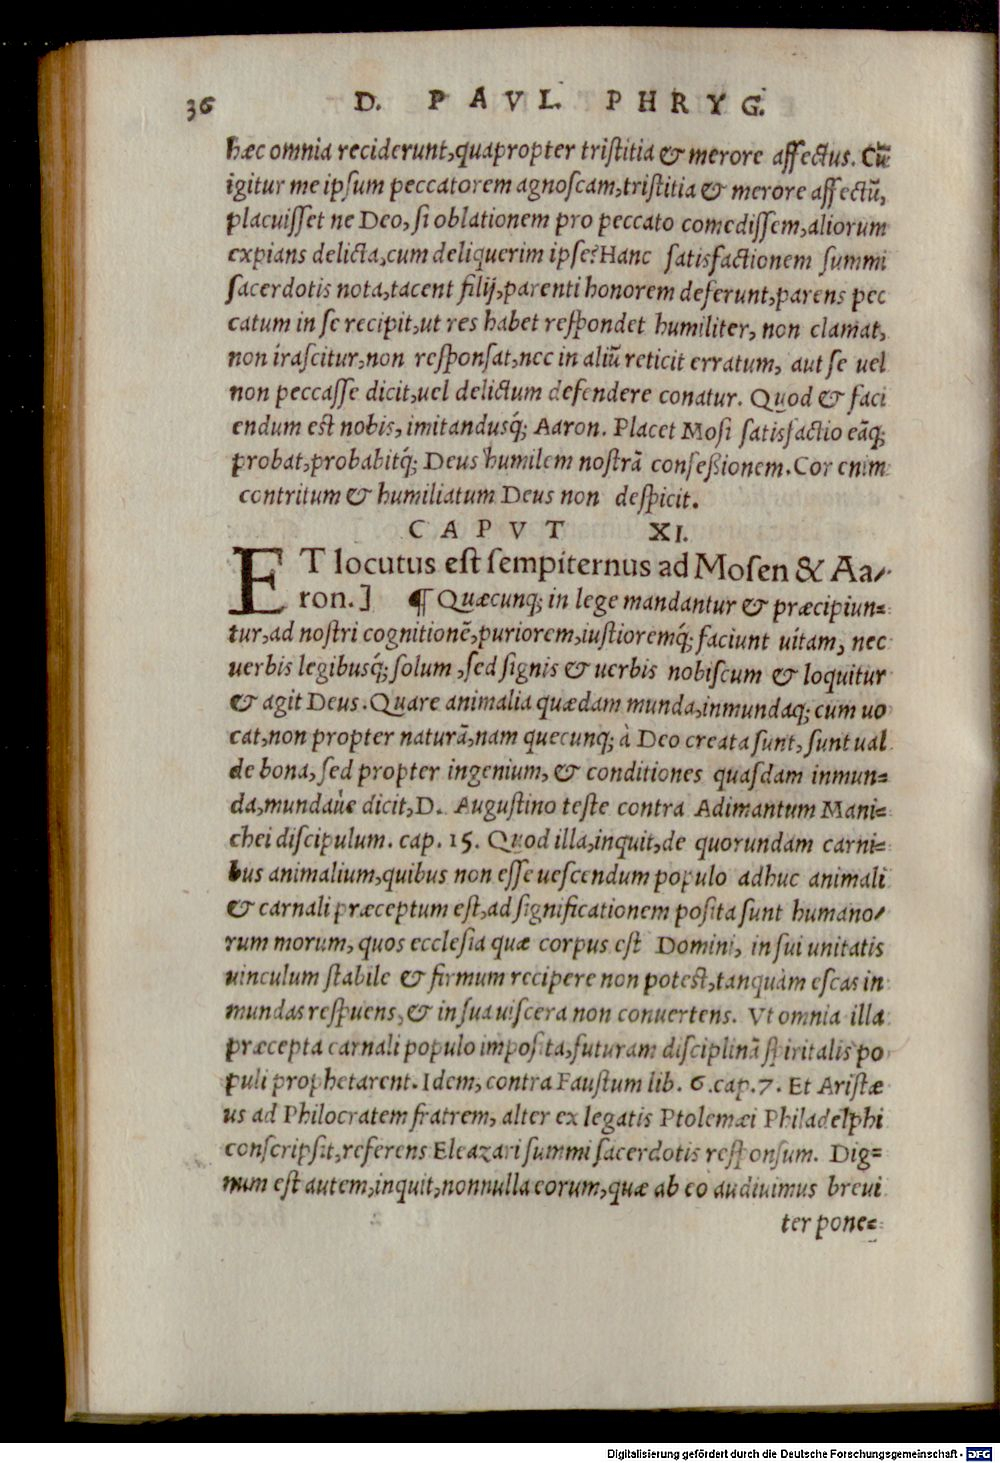 36 D. PAVL. PHRYG.
hæc omnia reciderunt,quapropter tristitia & merore affectus. Cũ
igitur me ipsum peccatorem agnoscam,tristitia & merore affectũ,
placuisset ne Deo, si oblationem pro peccato comedissem,aliorum
expians delicta,cum deliquerim ipse? Hanc satisfactionem summi
sacerdotis nota,tacent filij,parenti honorem deferunt,parens pec
catum in se recipit,ut res habet respondet humiliter, non clamat,
non irascitur,non responsat,nec in aliũ reticit erratum, aut se uel
non peccasse dicit,uel delictum defendere conatur. Quod & faci
endum est nobis, imitandusq́; Aaron. Placet Mosi satisfactio eãq;
probat,probabitq́; Deus humilem nostrã confeßionem. Cor enim
contritum & humiliatum Deus non despicit.
CAPVT XI.
ET locutus est sempiternus ad Mosen & Aa-
ron.] ¶ Quæcunq; in lege mandantur & præcipiun=
tur,ad nostri cognitionẽ,puriorem,iustioremq́; faciunt uitam, nec
uerbis legibusq́; solum ,sed signis & uerbis nobiscum & loquitur
& agit Deus. Quare animalia quædam munda,inmundaq; cum uo
cat,non propter naturã,nam quecunq; à Deo creata sunt, sunt ual
de bona, sed propter ingenium, & conditiones quasdam inmun=
da,mundaùe dicit, D. Augustino teste contra Adimantum Mani=
chei discipulum. cap. 15. Quod illa,inquit,de quorundam carni=
bus animalium,quibus non esse uescendum populo adhuc animali
& carnali præceptum est,ad significationem posita sunt humano-
rum morum, quos ecclesia quæ corpus est Domini, in sui unitatis
uinculum stabile & firmum recipere non potest,tanquàm escas in
mundas respuens, & in sua uiscera non conuertens. Vt omnia illa
præcepta carnali populo imposita,futuram disciplinã spiritalis po
puli prophetarent. Idem, contra Faustum lib. 6.cap.7. Et Aristæ
us ad Philocratem fratrem, alter ex legatis Ptolemæi Philadelphi
conscripsit,referens Eleazari summi sacerdotis responsum. Dig=
num est autem,inquit,nonnulla eorum,quæ ab eo audiuimus breui
ter pone=
Digitalisierung gefördert durch die Deutsche Forschungsgemeinschaft - DFG